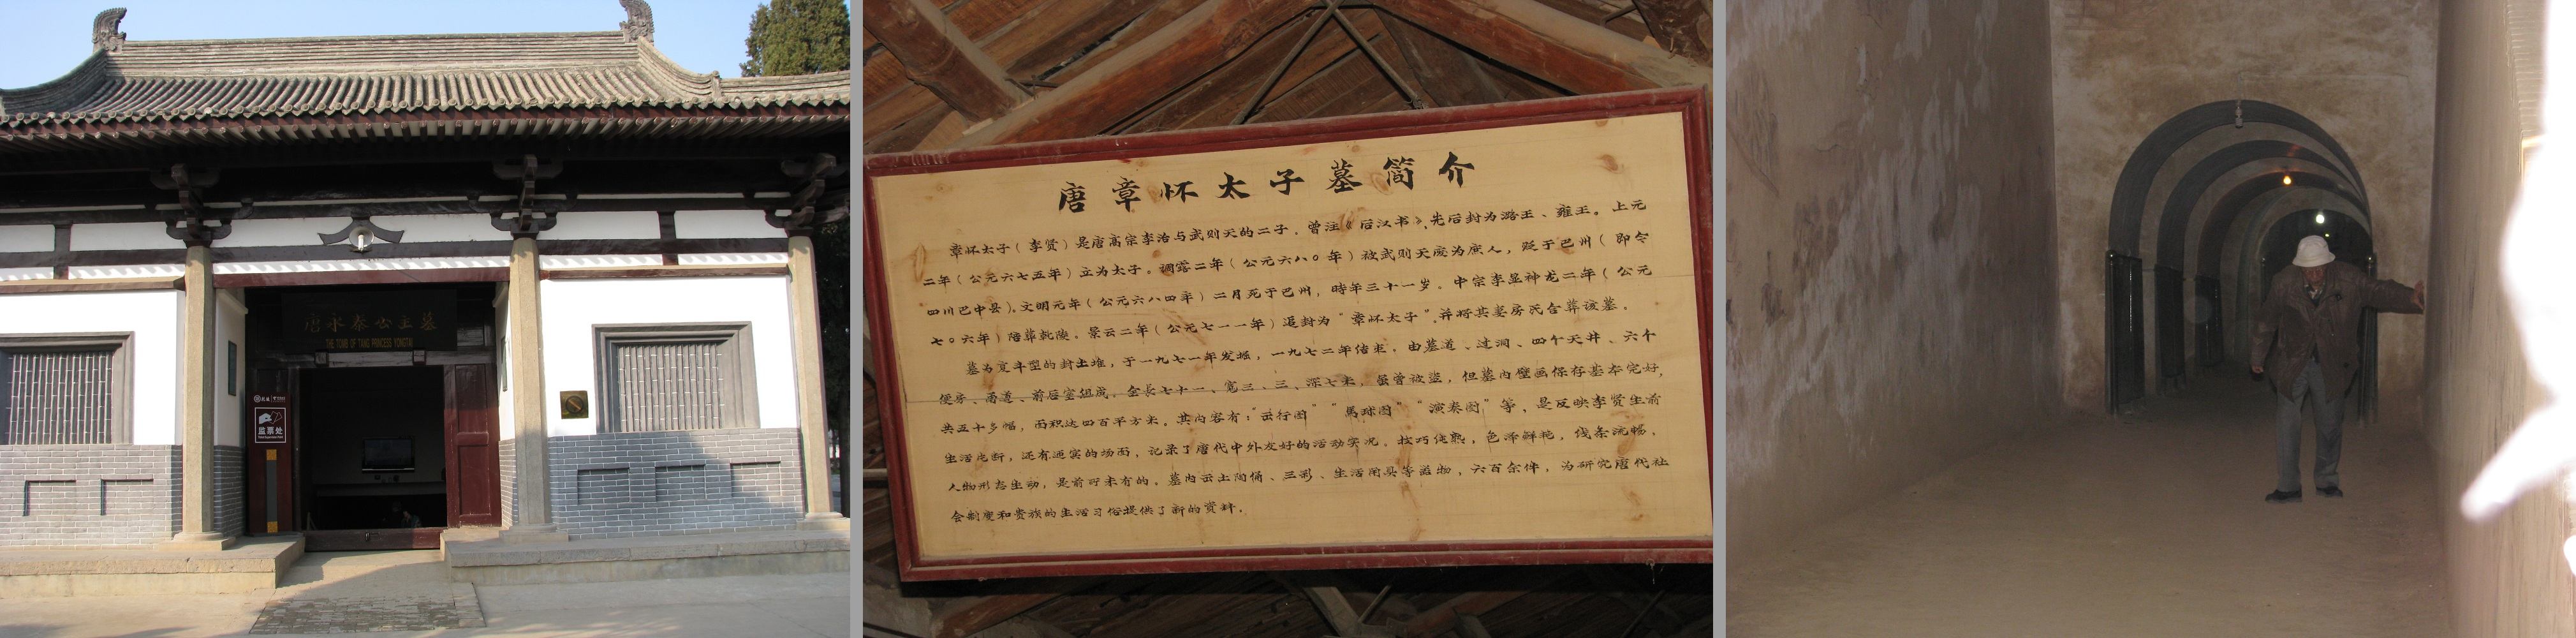 唐永泰公主墓
THE TOMB OF TANG PRINCESS YONGTAI
监票处
唐章怀太子墓简介
章怀太子（李贤）是唐高宗李治与武则天的二子。曾注《后汉书》，先后封为潞王、雍王。上元
二年（公元六七五年）立为太子。调露二年（公元六八〇年）被武则天废为庶人，贬于巴州（即今
四川巴中县）。文明元年（公元六八四年）二月死于巴州，時年三十一岁。中宗李显神龙二年（公元
七〇六年）陪葬乾陵。景云二年（公元七一一年）追封为“章怀太子”，并将其妻房氏合葬该墓。
墓为复斗型的封土堆，于一九七一年发掘，一九七二年结束。由墓道、过洞、四个天井、六个
便房、甬道、前后室组成。全長七十一、宽三、三、深七米，虽曾被盗，但墓内壁画保存基本完好，
共五十多幅，面积达四百平方米。其内容有：“出行图”“馬球图”“演奏图”等，是反映李贤生前
生活片断，还有迎宾的场面，记录了唐代中外友好的活动实况。技巧纯熟，色泽鲜艳，线条流畅。
人物形态生动，是前所未有的。墓内出土陶俑、三彩、生活用具等器物，六百余件，为研究唐代社
会制度和贵族的生活习俗提供了新的资料。